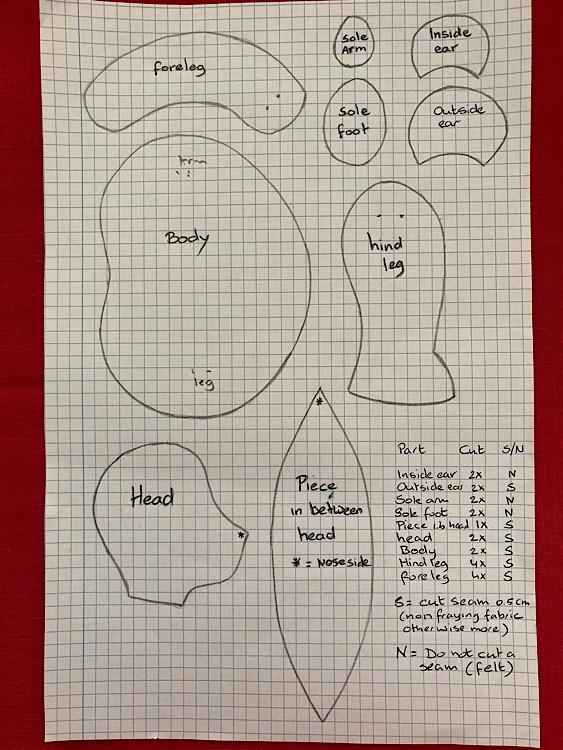 foreleg
Sole
Arm
Inside
ear
Sole
foot
Outside
ear
Arm
Body
leg
hind
leg
Head
*
*
Piece
in between
head
* = Noseside
Part Cut S/N
Inside ear 2x N
Outside ear 2x S
Sole arm 2x N
Sole foot 2x N
Piece i.b head 1x S
head 2x S
Body 2x S
Hind leg 4x S
foreleg 4x S
S = cut seam 0.5cm
(non fraying fabric
otherwise more)
N = Do not cut a
seam (felt)